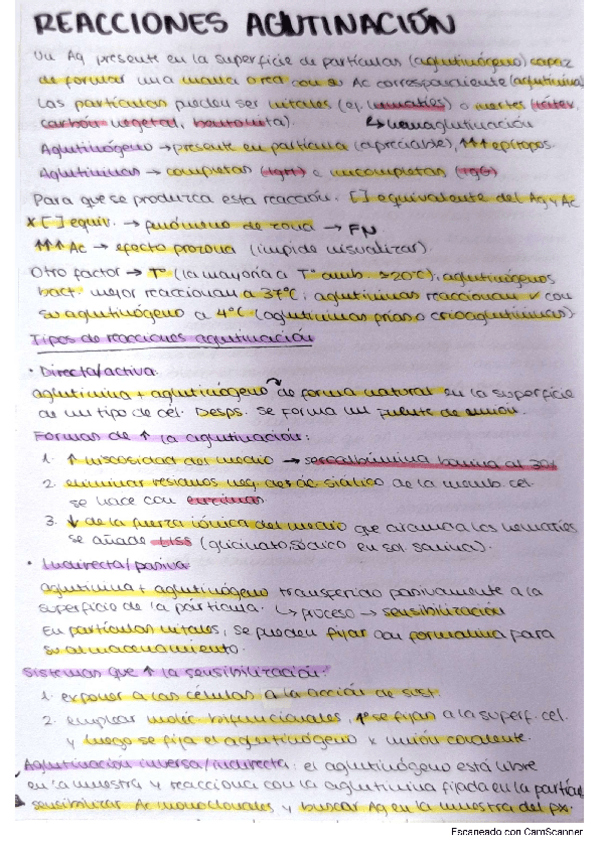 REACCIONES AGLUTINACIÓN
Un Ag presente en la superficie de partículas (aglutinógeno) capaz
de formar una unión con su Ac correspondiente (aglutinina)
Las partículas pueden ser vitales (ej. hematíes) o inertes (látex,
carbón vegetal, bentonita). ↳ hemaglutinación
Aglutinógeno → presente en partícula (apreciable), ↑↑↑ epítopos.
Aglutininas → completas (IgM) e incompletas (IgG)
Para que se produzca esta reacción: [ ] equivalente del Ag y Ac
x [ ] equiv. → fenómeno de zona → FN
↑↑↑ Ac → efecto prozona (impide visualizar).
Otro factor → Tª (la mayoría a Tª amb. ≥20ºC), aglutinógenos
bact. mejor reaccionan a 37ºC; aglutininas reaccionan ✓ con
su aglutinógeno a 4ºC (aglutininas frías o crioaglutininas)
Tipos de reacciones aglutinación
• Directa/activa.
aglutinina + aglutinógeno de forma natural en la superficie
de un tipo de cél. Desps. se forma un puente de unión.
Formas de ↑ la aglutinación:
1. ↑ viscosidad del medio → seroalbúmina bovina al 30%
2. eliminar residuos neg. del ác. siálico de la memb. cel.
se hace con enzimas
3. ↓ de la fuerza iónica del medio que circunda los hematíes
se añade LISS (glicinato sódico en sol. salina).
• Indirecta/pasiva:
aglutinina + aglutinógeno transferido pasivamente a la
superficie de la partícula. ↳ proceso → sensibilización
En partículas vitales, se pueden fijar con formalina para
su almacenamiento.
Sistemas que ↑ la sensibilización:
1. exponer a las células a la acción de sust.
2. emplear moléc. bifuncionales, 1º se fijan a la superf. cel.
y luego se fija el aglutinógeno x unión covalente.
Aglutinación inversa/indirecta: el aglutinógeno está libre
en la muestra y reacciona con la aglutinina fijada en la partícula
sensibilizar Ac monoclonales y buscar Ag en la muestra del px.
Escaneado con CamScanner